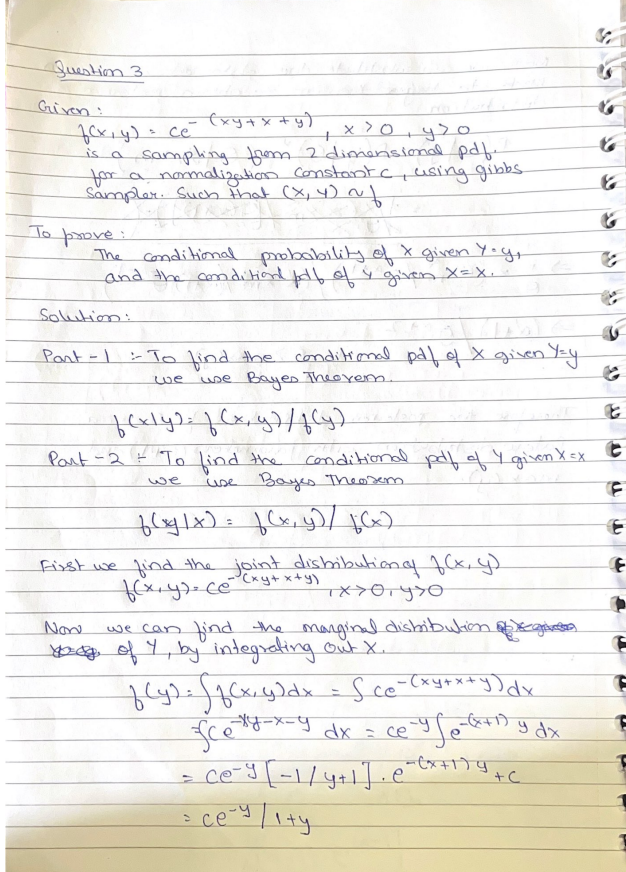 Question 3
Given :
f(x,y) = ce^-(xy+x+y) , x>0, y>0
is a sampling from 2 dimensional pdf.
for a normalization constant c, using gibbs
sampler. Such that (X, Y) ~ f
To prove :
The conditional probability of X given Y=y,
and the condition pdf of Y given X=x.
Solution :
Part-1 :- To find the conditional pdf of X given Y=y
we use Bayes Theorem.
f(x|y) = f(x,y)/f(y)
Part-2 :- To find the conditional pdf of Y given X=x
we use Bayes Theorem
f(y|x) = f(x,y)/f(x)
First we find the joint distribution of f(x,y)
f(x,y) = ce^-(xy+x+y) , x>0, y>0
Now we can find the marginal distribution
of Y, by integrating out X.
f(y) = ∫f(x,y)dx = ∫ce^-(xy+x+y)dx
∫ce^-xy-x-y dx = ce^-y∫e^-(x+1)y dx
= ce^-y[-1/y+1].e^-(x+1)y+c
= ce^-y/1+y